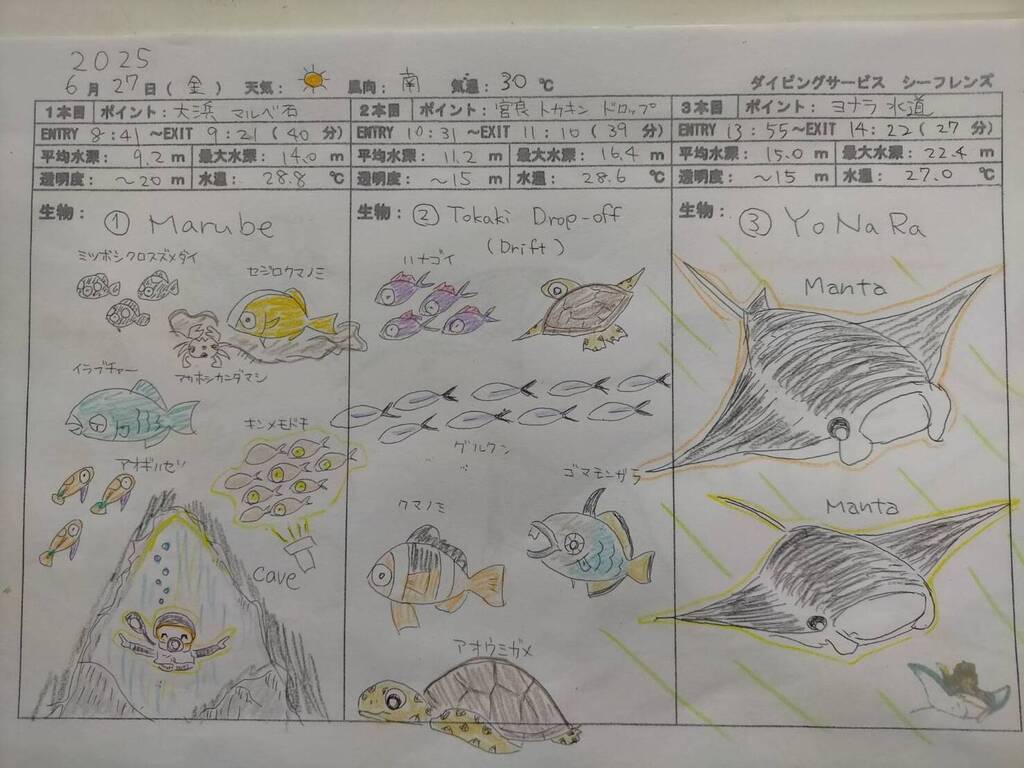 2025
6月27日(金) 天気: 風向:南 気温:30℃ ダイビングサービス シーフレンズ
1本目 ポイント:大浜 マルベ石
ENTRY 8:41 ~EXIT 9:21 (40分)
平均水深: 9.2 m 最大水深: 14.0 m
透明度: ~20 m 水温: 28.8 ℃
生物: ① Marube
ミツボシクロスズメダイ
セジロクマノミ
アカホシカニダマシ
イラブチャー
キンメモドキ
アオギハゼ
cave
2本目 ポイント:宮良 トカキン ドロップ
ENTRY 10:31 ~EXIT 11:10 (39分)
平均水深: 11.2 m 最大水深: 16.4 m
透明度: ~15 m 水温: 28.6 ℃
生物: ② Tokaki Drop-off
(Drift)
ハナゴイ
グルクン
ゴマモンガラ
クマノミ
アオウミガメ
3本目 ポイント:ヨナラ水道
ENTRY 13:55~EXIT 14:22 (27分)
平均水深: 15.0 m 最大水深: 22.4 m
透明度: ~15 m 水温: 27.0 ℃
生物: ③ YoNaRa
Manta
Manta